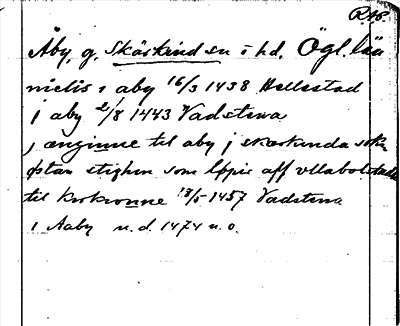 RAp.
Åby, g. Skärkind sn o hd. Ögl. län
nielis i aby 16/3 1438 Hellestad
j aby 2/8 1443 Vadstena
j ænginne til aby j skærkinda sokn
østan stighin som løpir aff vllabolstada
til brobronne 18/5 1457 Vadstena
i Aaby u.d. 1474 u.o.